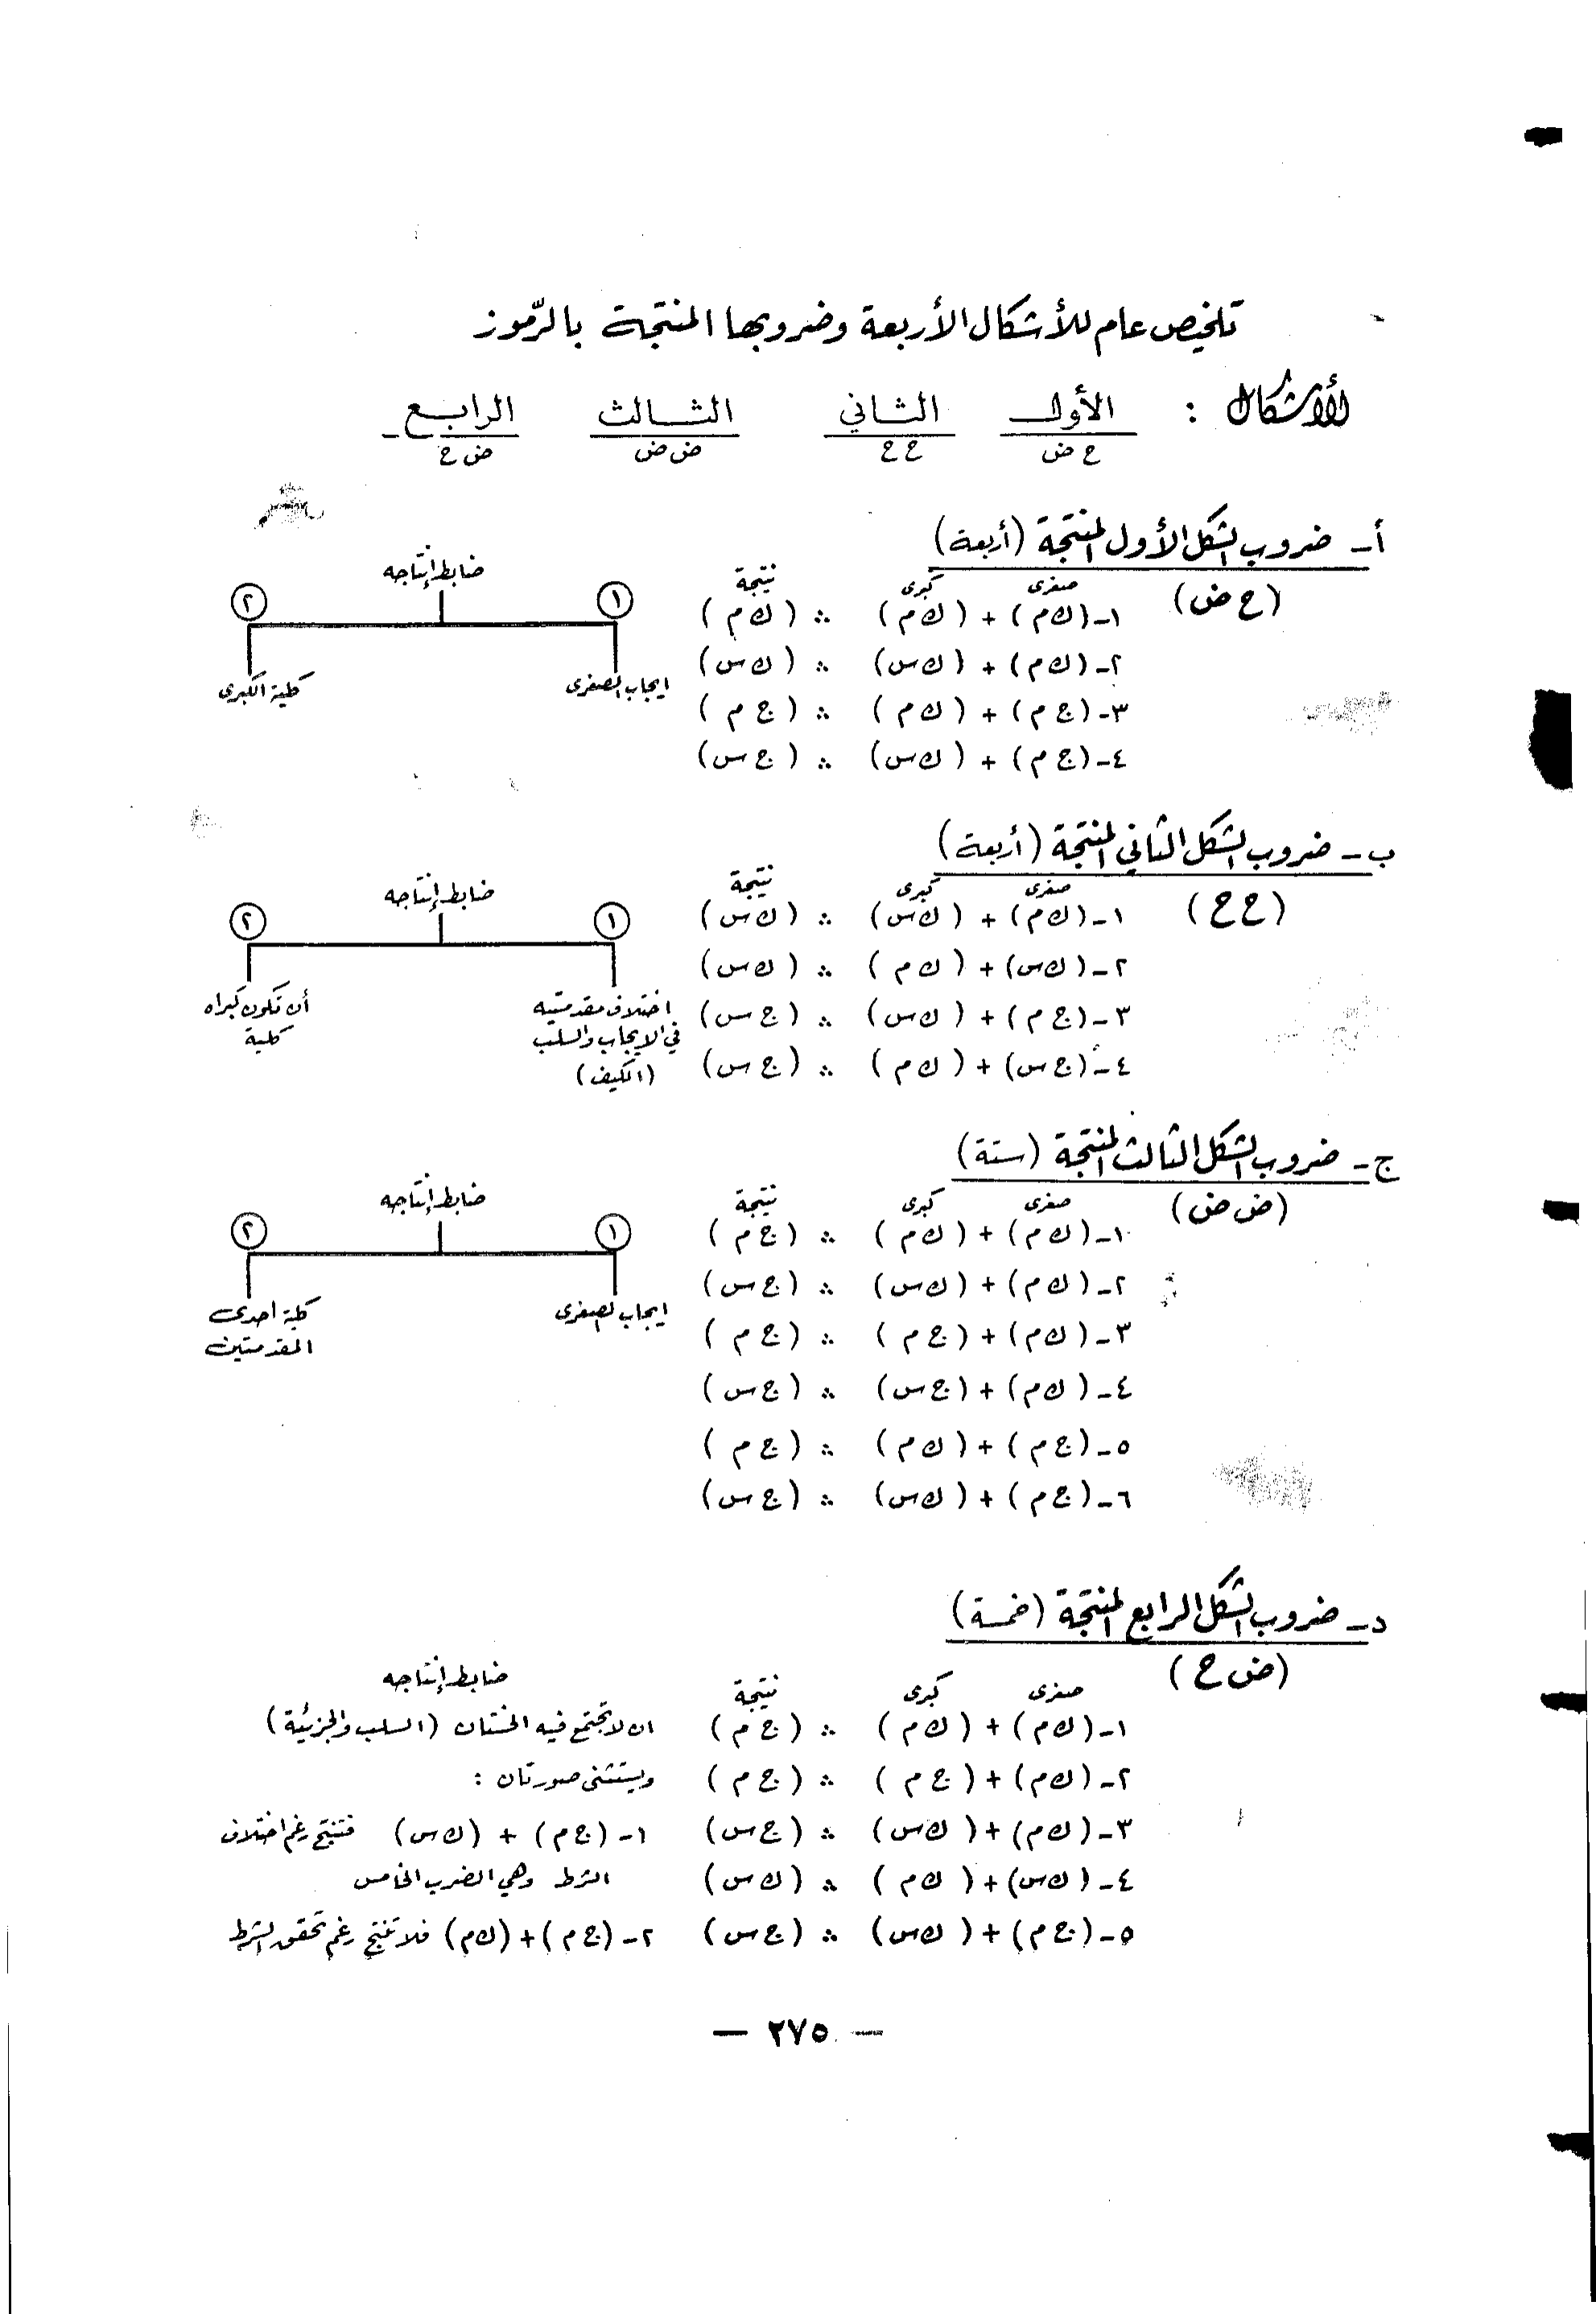 تلخيص عام للأشكال الأربعة وضروبها المنتجة بالرّموز
الأشكال : الأول الثاني الثالث الرابع
ح ض ح ح ض ض ض ح
أ- ضروب الشكل الأول المنتجة (أربعة)
(ح ض)
صغرى كبرى نتيجة
١- (ك م) + (ك م) ∴ (ك م)
٢- (ك م) + (ك س) ∴ (ك س)
٣- (ج م) + (ك م) ∴ (ج م)
٤- (ج م) + (ك س) ∴ (ج س)
ضابط إنتاجه
١ ٢
ايجاب الصغرى كلية الكبرى
ب- ضروب الشكل الثاني المنتجة (أربعة)
(ح ح)
صغرى كبرى نتيجة
١- (ك م) + (ك س) ∴ (ك س)
٢- (ك س) + (ك م) ∴ (ك س)
٣- (ج م) + (ك س) ∴ (ج س)
٤- (ج س) + (ك م) ∴ (ج س)
ضابط إنتاجه
١ ٢
اختلاف مقدمتيه أن تكون كبراه
في الايجاب والسلب كلية
(الكيف)
ج- ضروب الشكل الثالث المنتجة (ستة)
(ض ض)
صغرى كبرى نتيجة
١- (ك م) + (ك م) ∴ (ج م)
٢- (ك م) + (ك س) ∴ (ج س)
٣- (ك م) + (ج م) ∴ (ج م)
٤- (ك م) + (ج س) ∴ (ج س)
٥- (ج م) + (ك م) ∴ (ج م)
٦- (ج م) + (ك س) ∴ (ج س)
ضابط إنتاجه
١ ٢
ايجاب الصغرى كلية احدى
المقدمتين
د- ضروب الشكل الرابع المنتجة (خمسة)
(ض ح)
صغرى كبرى نتيجة
١- (ك م) + (ك م) ∴ (ج م)
٢- (ك م) + (ج م) ∴ (ج م)
٣- (ك م) + (ك س) ∴ (ج س)
٤- (ك س) + (ك م) ∴ (ك س)
٥- (ج م) + (ك س) ∴ (ج س)
ضابط إنتاجه
ان لا تجتمع فيه الخستان (السلب والجزئية)
ويستثنى صورتان :
١- (ج م) + (ك س) فتنتج رغم اختلاف
الشرط وهي الضرب الخامس
٢- (ج م) + (ك م) فلا تنتج رغم تحقق الشرط
— ٢٧٥ —